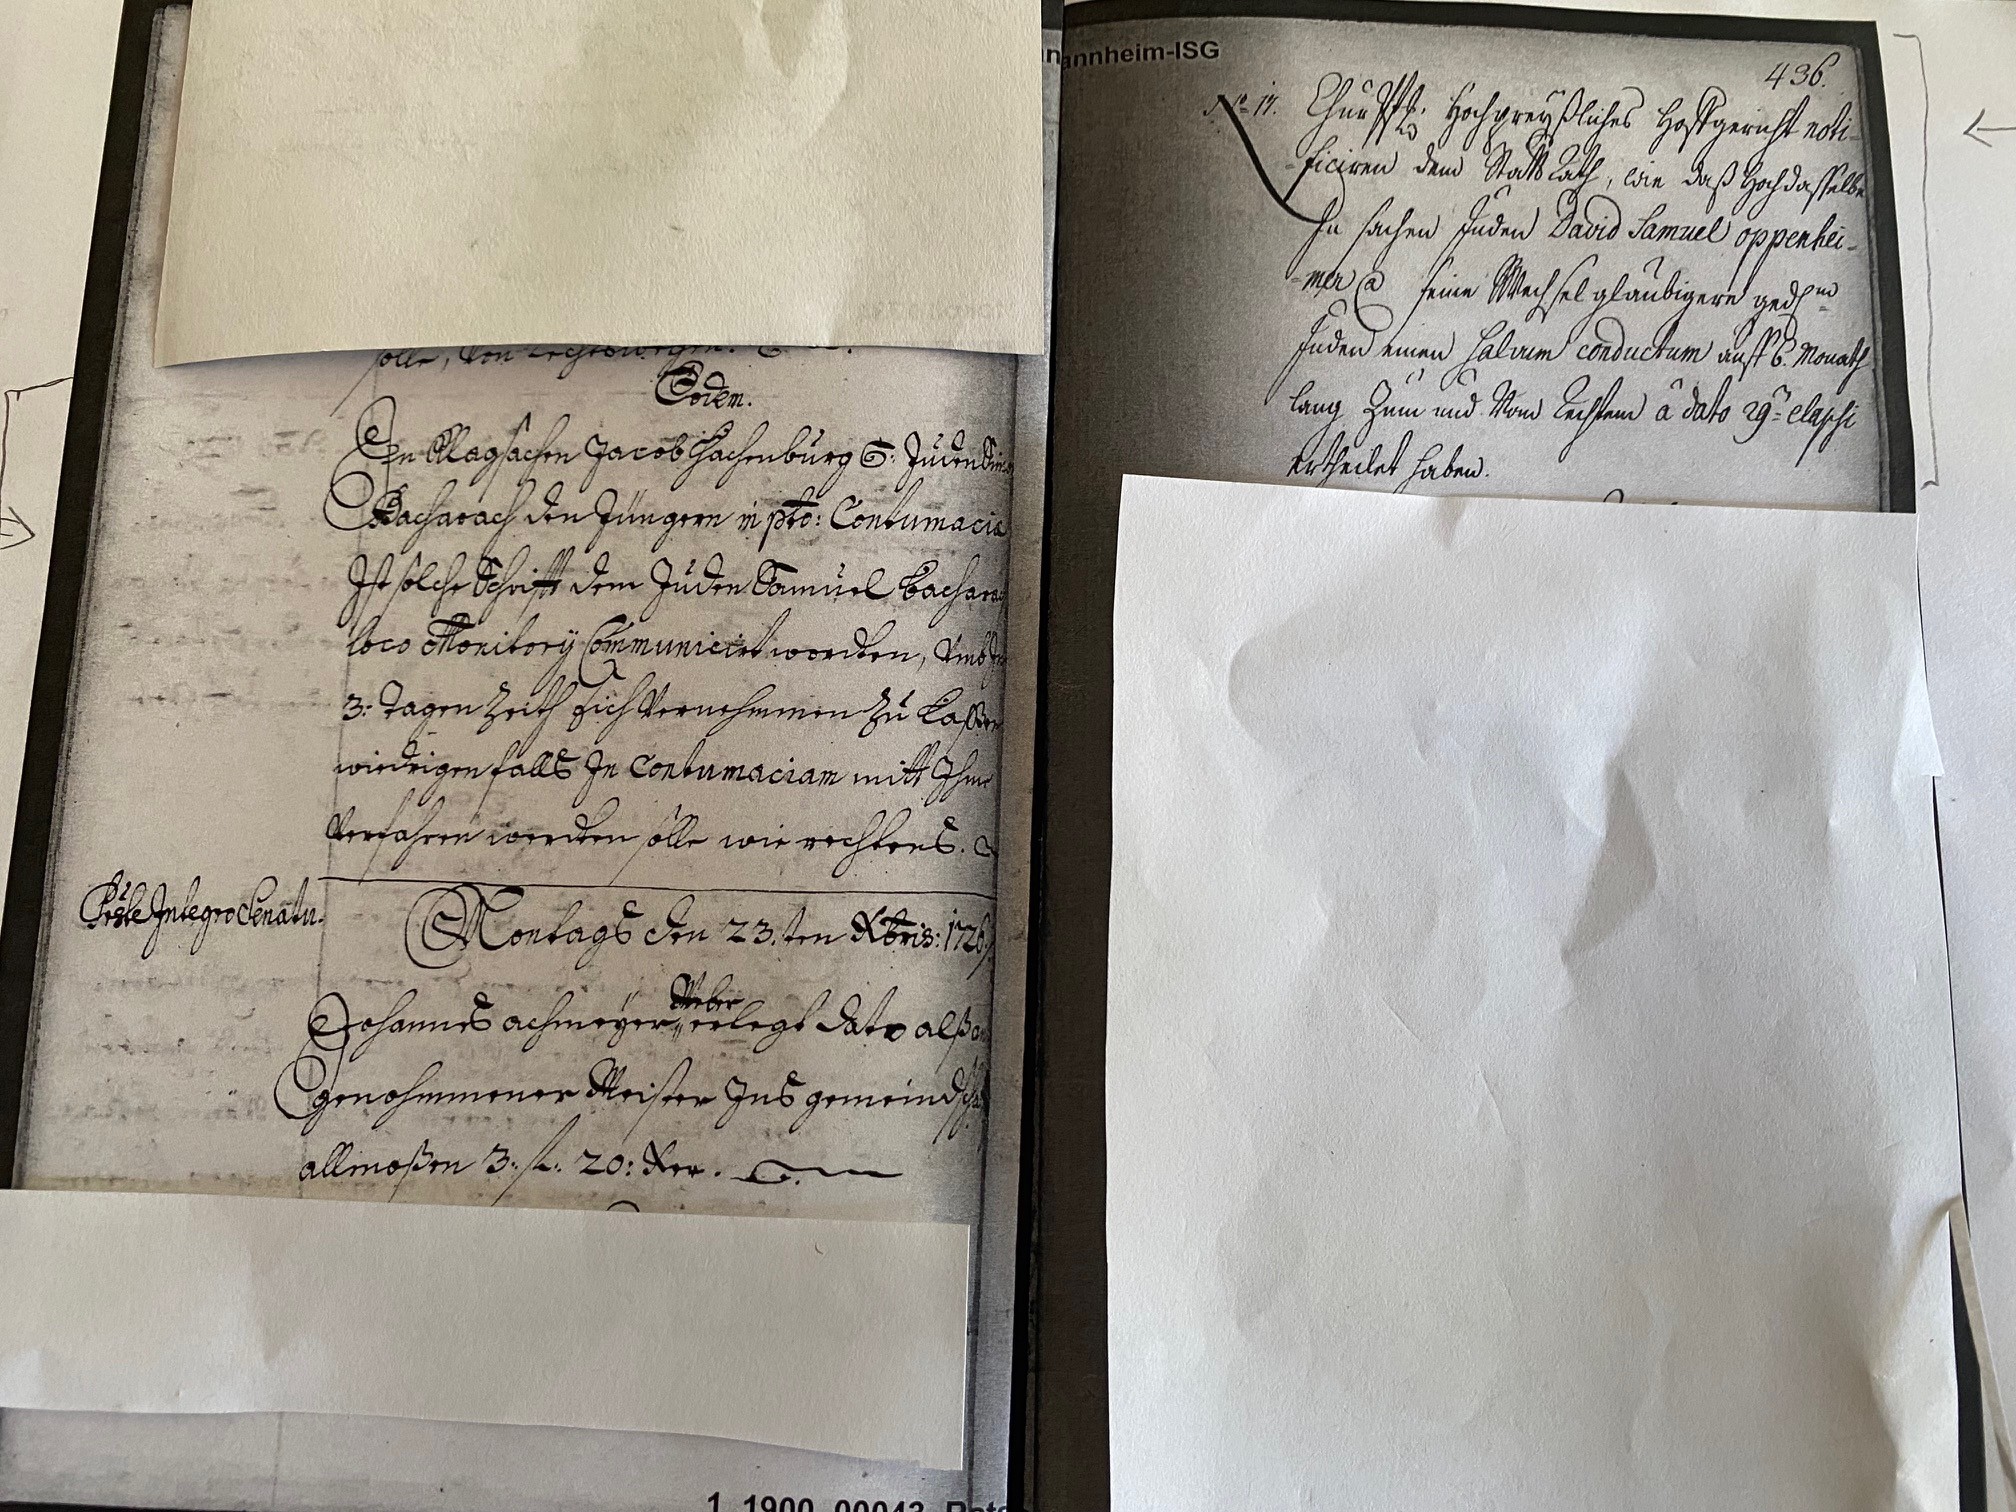 solle, Von rechtswegen.
Eodem.
In Klagsachen Jacob Hachenburg C: Juden
Bacharach den Jüngern in pto: Contumacia
Ist solche Schrifft dem Juden Samuel Bachara
loco Monitorÿ Communicirt worden, Umb
3: tagen Zeith sich Vernehmmen Zu Laßen
wiedrigenfalls In Contumaciam mitt Ihme
Verfahren werden solle wie rechtens.
Pnte Integro Senatu.
Montags den 23.ten Xbris: 1726
Johannes achmeÿer Weber erlegt dato alß an
genohmmener Meister Ins gemeindsch
allmoßen 3: fl: 20: Xer.
annheim-ISG
436.
Nro 17. Churpfltz. Hochpreyßliches Hoffgericht noti-
-ficiren dem Statt Rath, wie daß Hochdasselbe
In sachen Juden David Samuel oppenhei-
-mer Ca seine Wechsel gläubigere gedchen
Juden einen salvum conductum auff 6. Monath
lang Zum und Vom Rechten â dato 29ten elapsi
ertheilet haben.
1_1900_00043_Rats